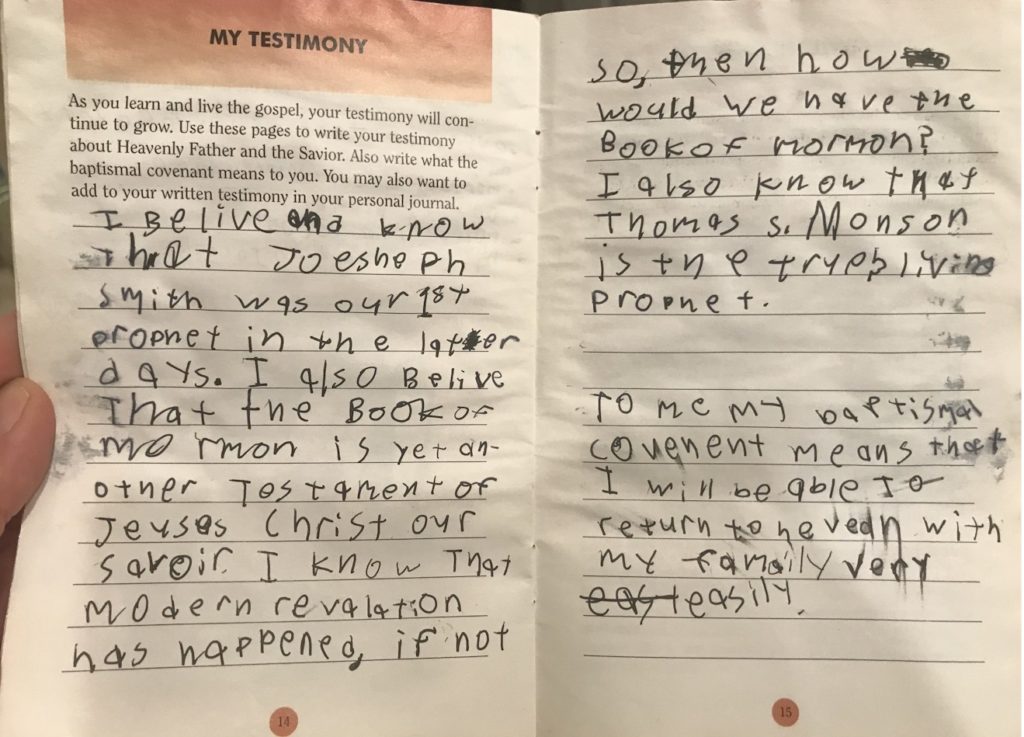 MY TESTIMONY
As you learn and live the gospel, your testimony will con-
tinue to grow. Use these pages to write your testimony
about Heavenly Father and the Savior. Also write what the
baptismal covenant means to you. You may also want to
add to your written testimony in your personal journal.
I Belive and know
That Joesheph
smith was our 1st
prophet in the latter
days. I also Belive
That the Book of
mormon is yet an-
other Testament of
Jeuses Christ our
savoir. I know That
modern revalation
has happened, if not
14
so, then how
would we have the
Book of mormon?
I also know that
Thomas s. Monson
is the trye living
prophet.
To me my baptismal
covenent means that
I will be able To
return to hevean with
my famaily very
east easily.
15